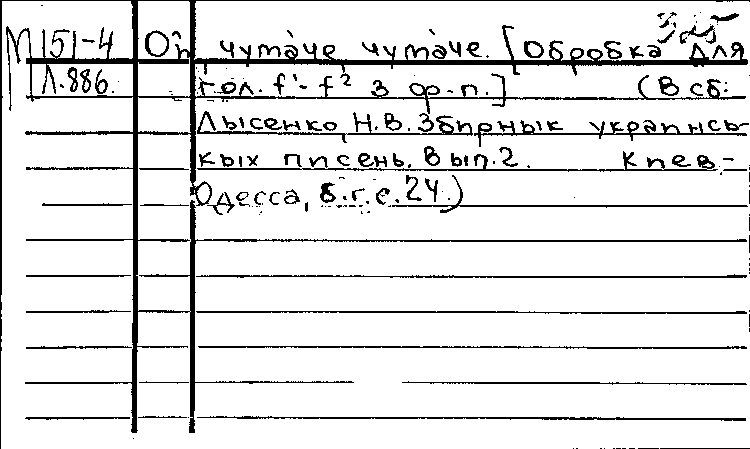 325
М 151-4 Ой, чумаче, чумаче. [Обробка для
Л.886. гол. f¹-f² з ф-п.] (В сб:
Лысенко, Н.В. Збирнык украинсь-
кых писень. Вып.2. Киев,-
Одесса, б.г. с.24.)